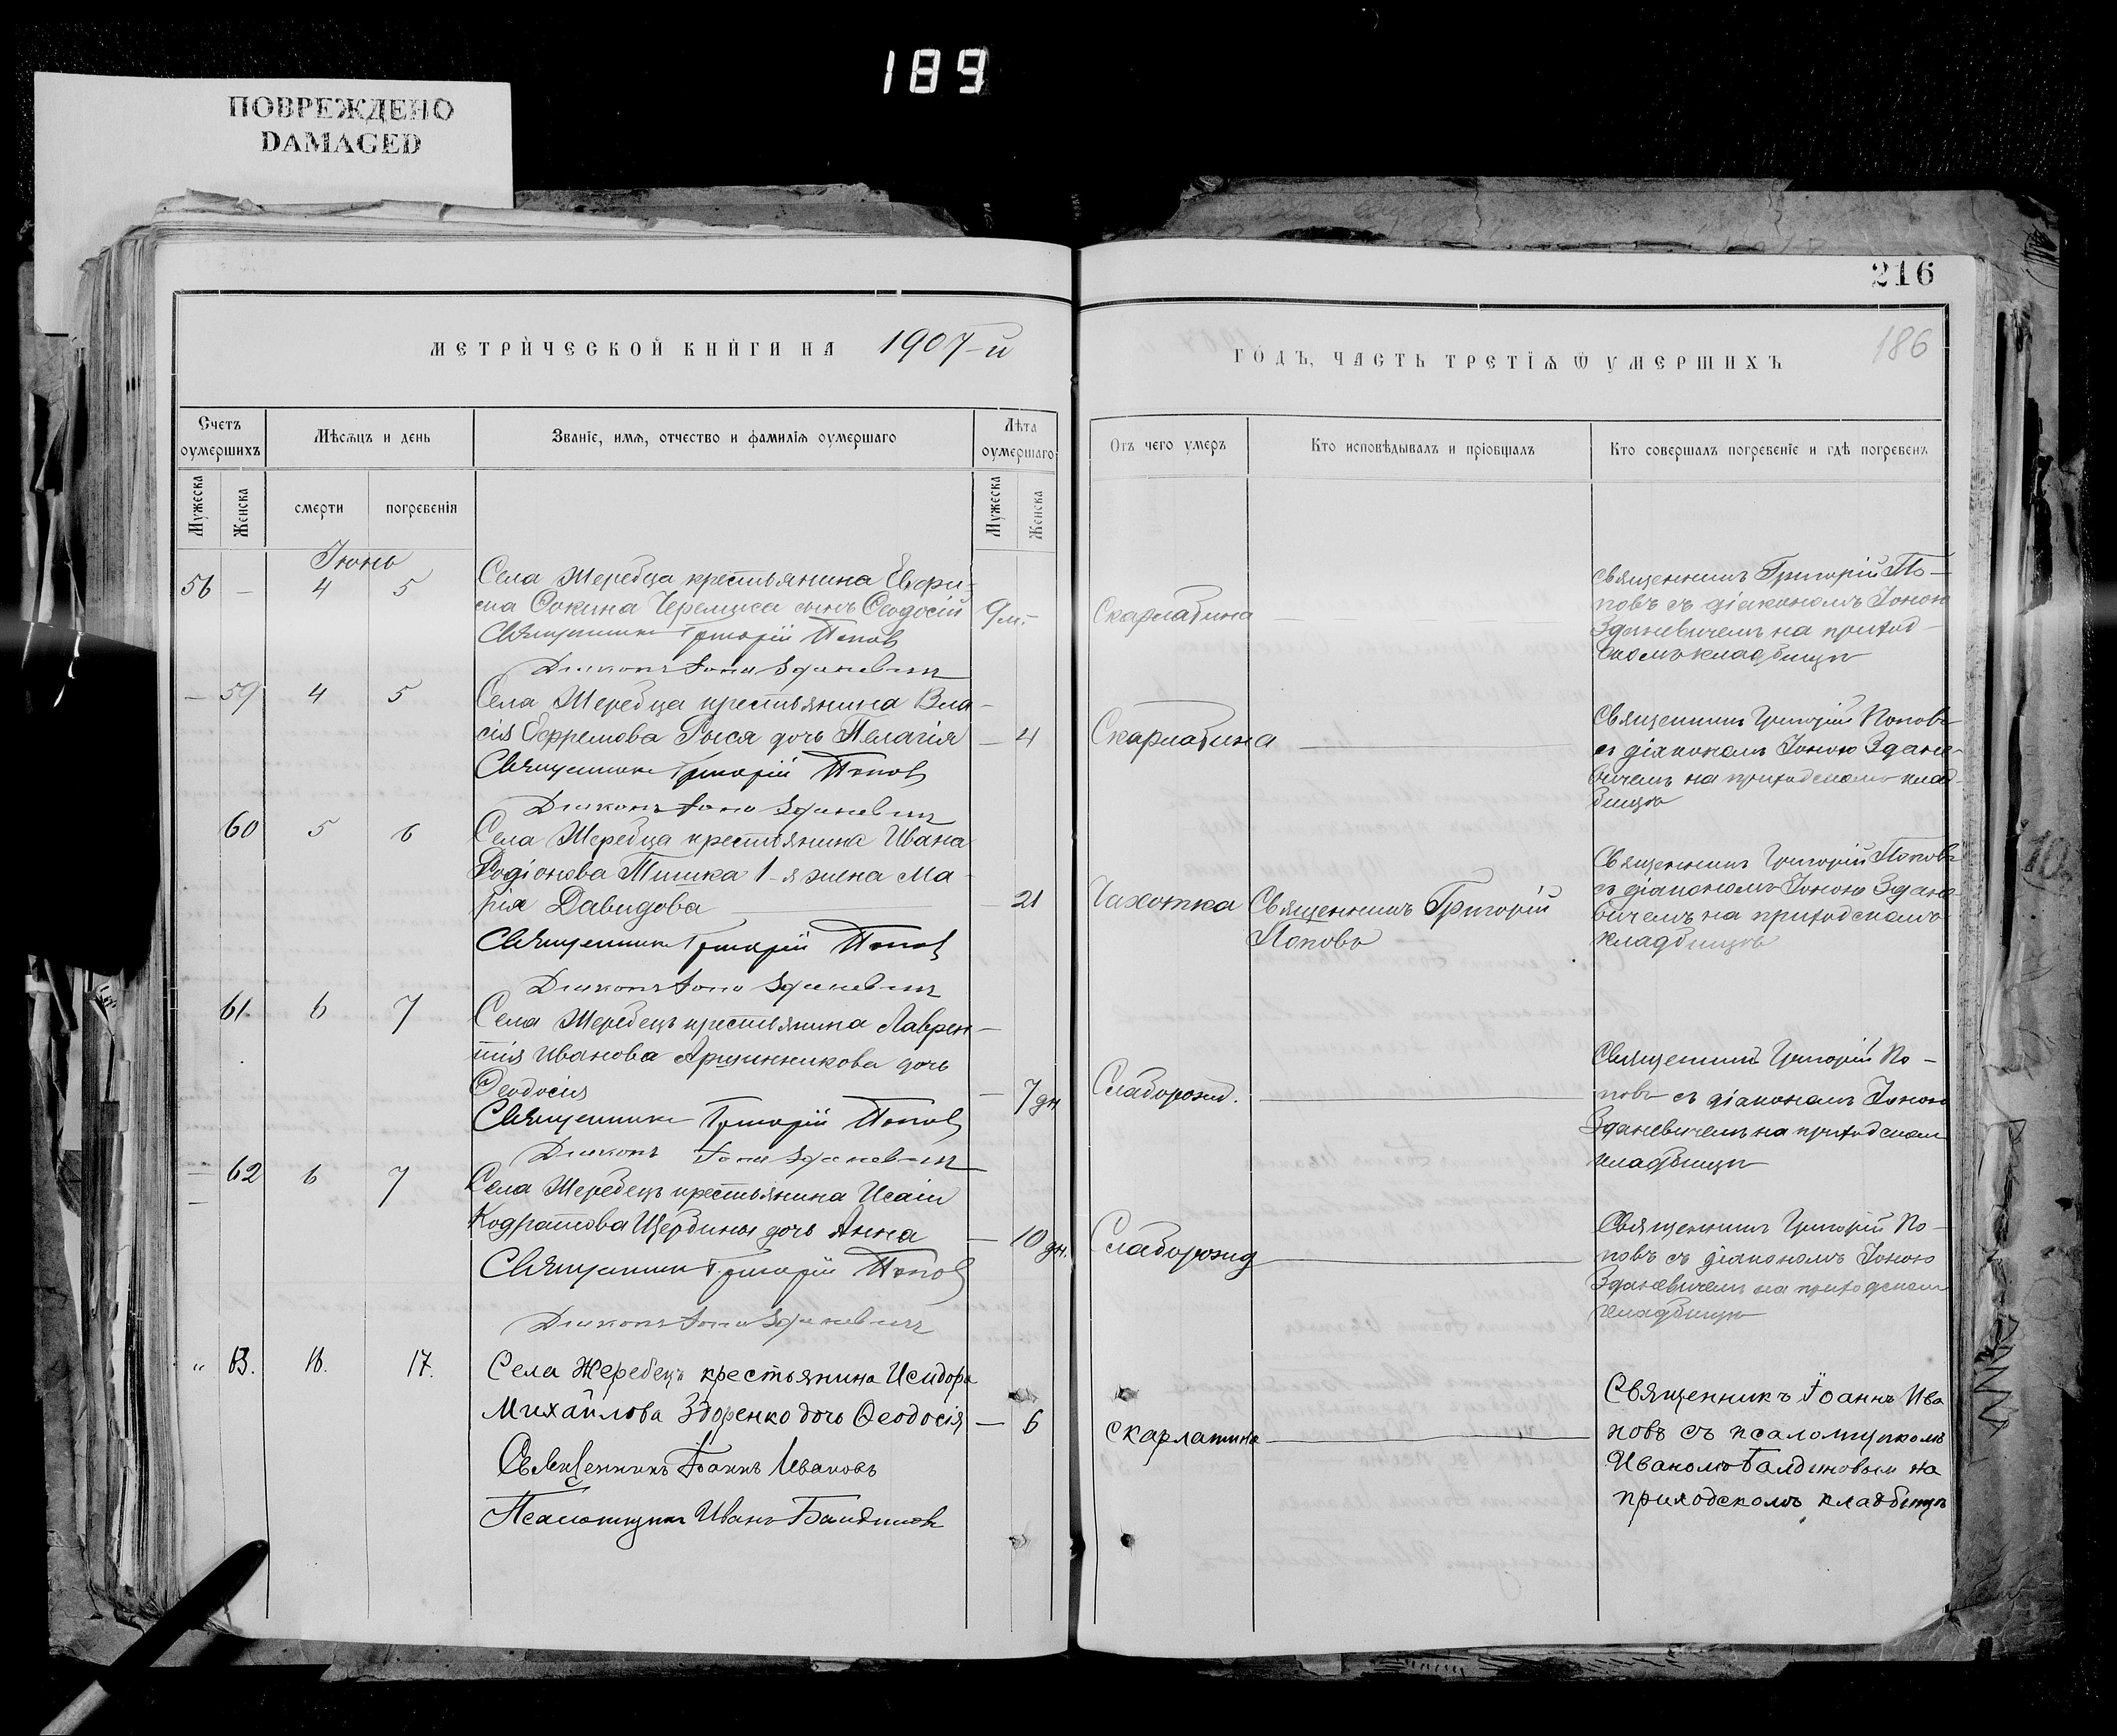 189
ПОВРЕЖДЕНО
DAMAGED
216
186
МЕТРИ́ЧЕСКОЙ КНИ́ГИ НА 1907-й
ГО́ДЪ, ЧАСТЬ ТРЕТІѦ Ѿ УМЕРШИХЪ
Счетъ оумершихъ
Мѣсѧцъ и день
Званіе, имѧ, отчество и фамиліѧ оумершаго
Лѣта оумершаго
Отъ чего умеръ
Кто исповѣдывалъ и пріобщалъ
Кто совершалъ погребеніе и гдѣ погребенъ
Мужеска
Женска
смерти
погребенія
Мужеска
Женска
Іюнь
56 - 4 5
Села Жеребца крестьянина
Фокина сынъ Ѳеодосій
9 м. -
Священникъ Григорій Попов
Диаконъ Іона Зданевич
Скарлатина
священникъ Григорій По-
повъ съ діакономъ Іоною
Зданевичемъ на приход-
скомъ кладбищѣ
- 59 4 5
Села Жеребца крестьянина Вла-
сія Ефремова Рыся дочь Пелагія
- 4
Священникъ Григорій Попов
Диаконъ Іона Зданевич
Скарлатина
Священникъ Григорій Поповъ
съ діакономъ Іоною Здане-
вичемъ на приходскомъ клад-
бищѣ
60 5 6
Села Жеребца крестьянина Ивана
Родіонова Тишка 1-я жена Ма-
рія Давидова
- 21
Священникъ Григорій Попов
Диаконъ Іона Зданевич
Чахотка
Священникъ Григорій
Поповъ
Священникъ Григорій Поповъ
съ діакономъ Іоною Здане-
вичемъ на приходскомъ
кладбищѣ
61 6 7
Села Жеребецъ крестьянина Лаврен-
тія Иванова Аршинникова дочь
Ѳеодосія
- 7 дн
Священникъ Григорій Попов
Диаконъ Іона Зданевич
Слаборожд.
Священникъ Григорій По-
повъ съ діакономъ Іоною
Зданевичемъ на приходскомъ
кладбищѣ
- 62 6 7
Села Жеребецъ крестьянина Исаіи
Кодратова Щербины дочь Анна
- 10 дн.
Священникъ Григорій Попов
Диаконъ Іона Зданевич
Слаборожд
Священникъ Григорій По-
повъ съ діакономъ Іоною
Зданевичемъ на приходскомъ
кладбищѣ
" 63. 16. 17.
Села Жеребецъ крестьянина Исидора
Михайлова Здоренко дочь Ѳеодосія
- 6
Священникъ Іоаннъ Ивановъ
Псаломщикъ Иванъ Балдинов
скарлатина
Священникъ Іоаннъ Ива
новъ съ псаломщикомъ
Иваномъ Балдиновым на
приходскомъ кладбищѣ